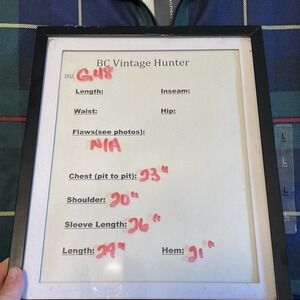 BC Vintage Hunter
SKU: G48
Length: Inseam:
Waist: Hip:
Flaws(see photos):
N/A
Chest (pit to pit): 23"
Shoulder: 20"
Sleeve Length: 26"
Length: 29" Hem: 21"
L
L
L